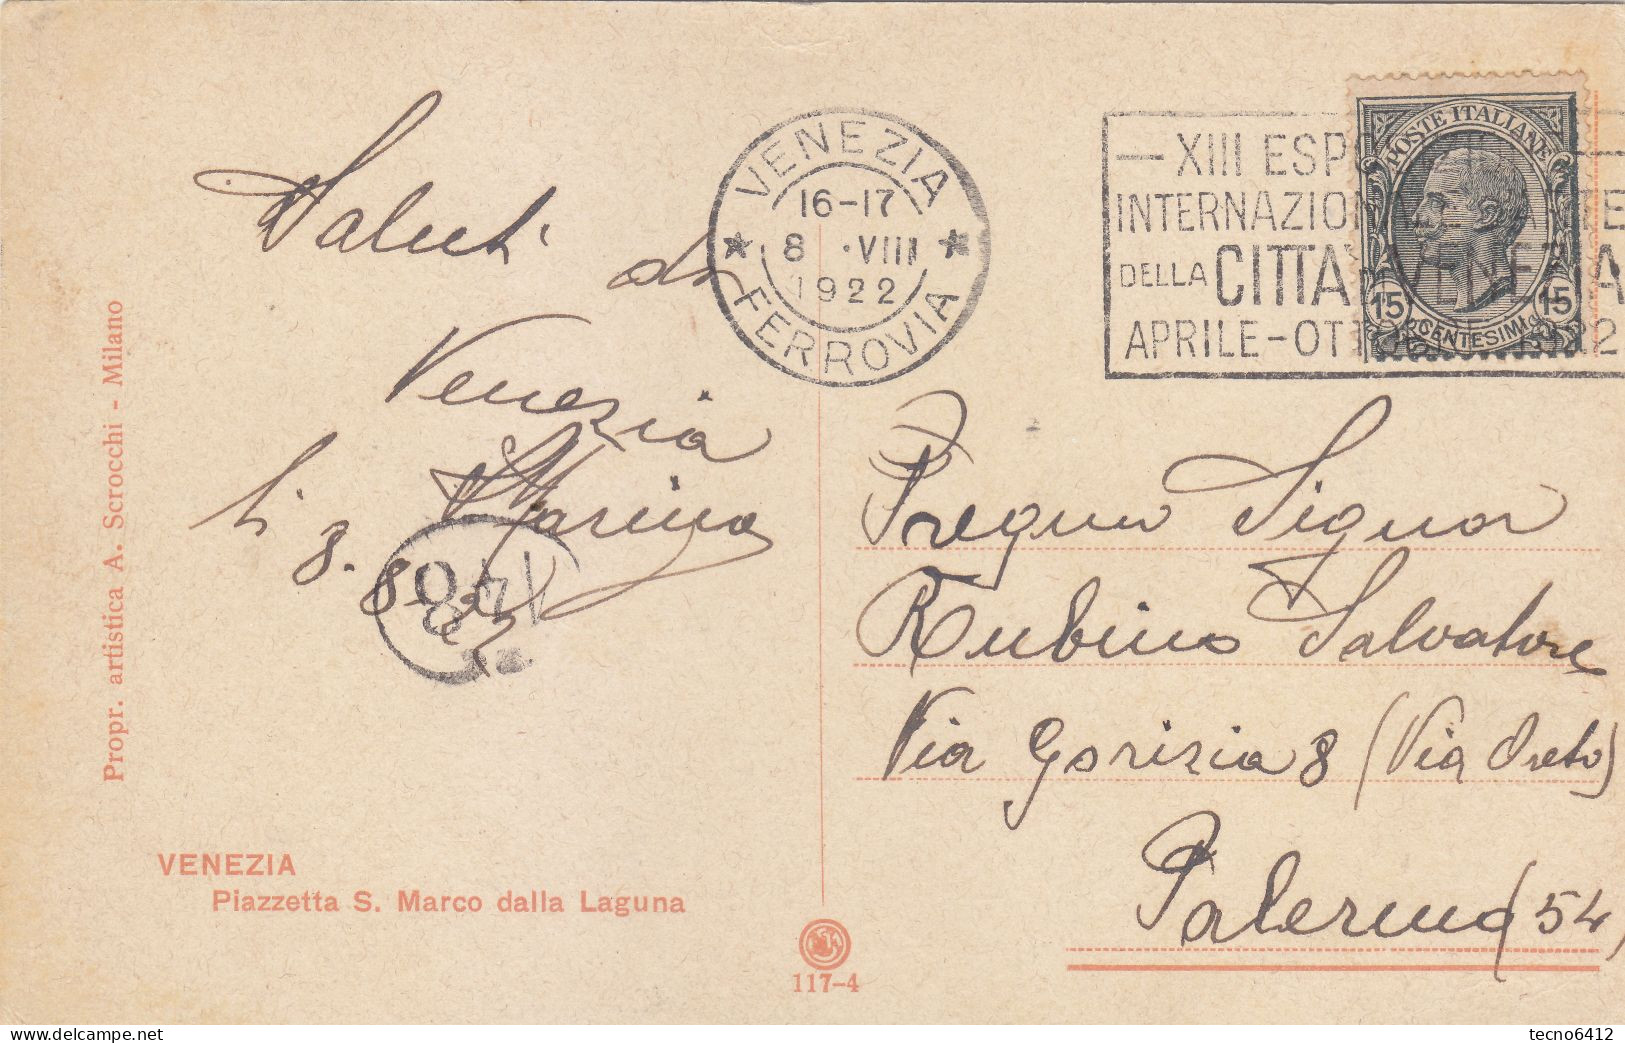 Saluti da
Venezia
Marina
li 8. 8. 22
148
Propr. artistica A. Scrocchi - Milano
VENEZIA
Piazzetta S. Marco dalla Laguna
117-4
VENEZIA
16-17
8 · VIII
1922
FERROVIA
— XIII ESPO
INTERNAZIO
DELLA CITTA VENEZIA
APRILE-OT
POSTE ITALIANE
15 CENTESIMI 15
Pregmo Signor
Rubino Salvatore
Via Gorizia 8 (Via Oreto)
Palermo (54)
https://www.delcampe.net
tecno6412